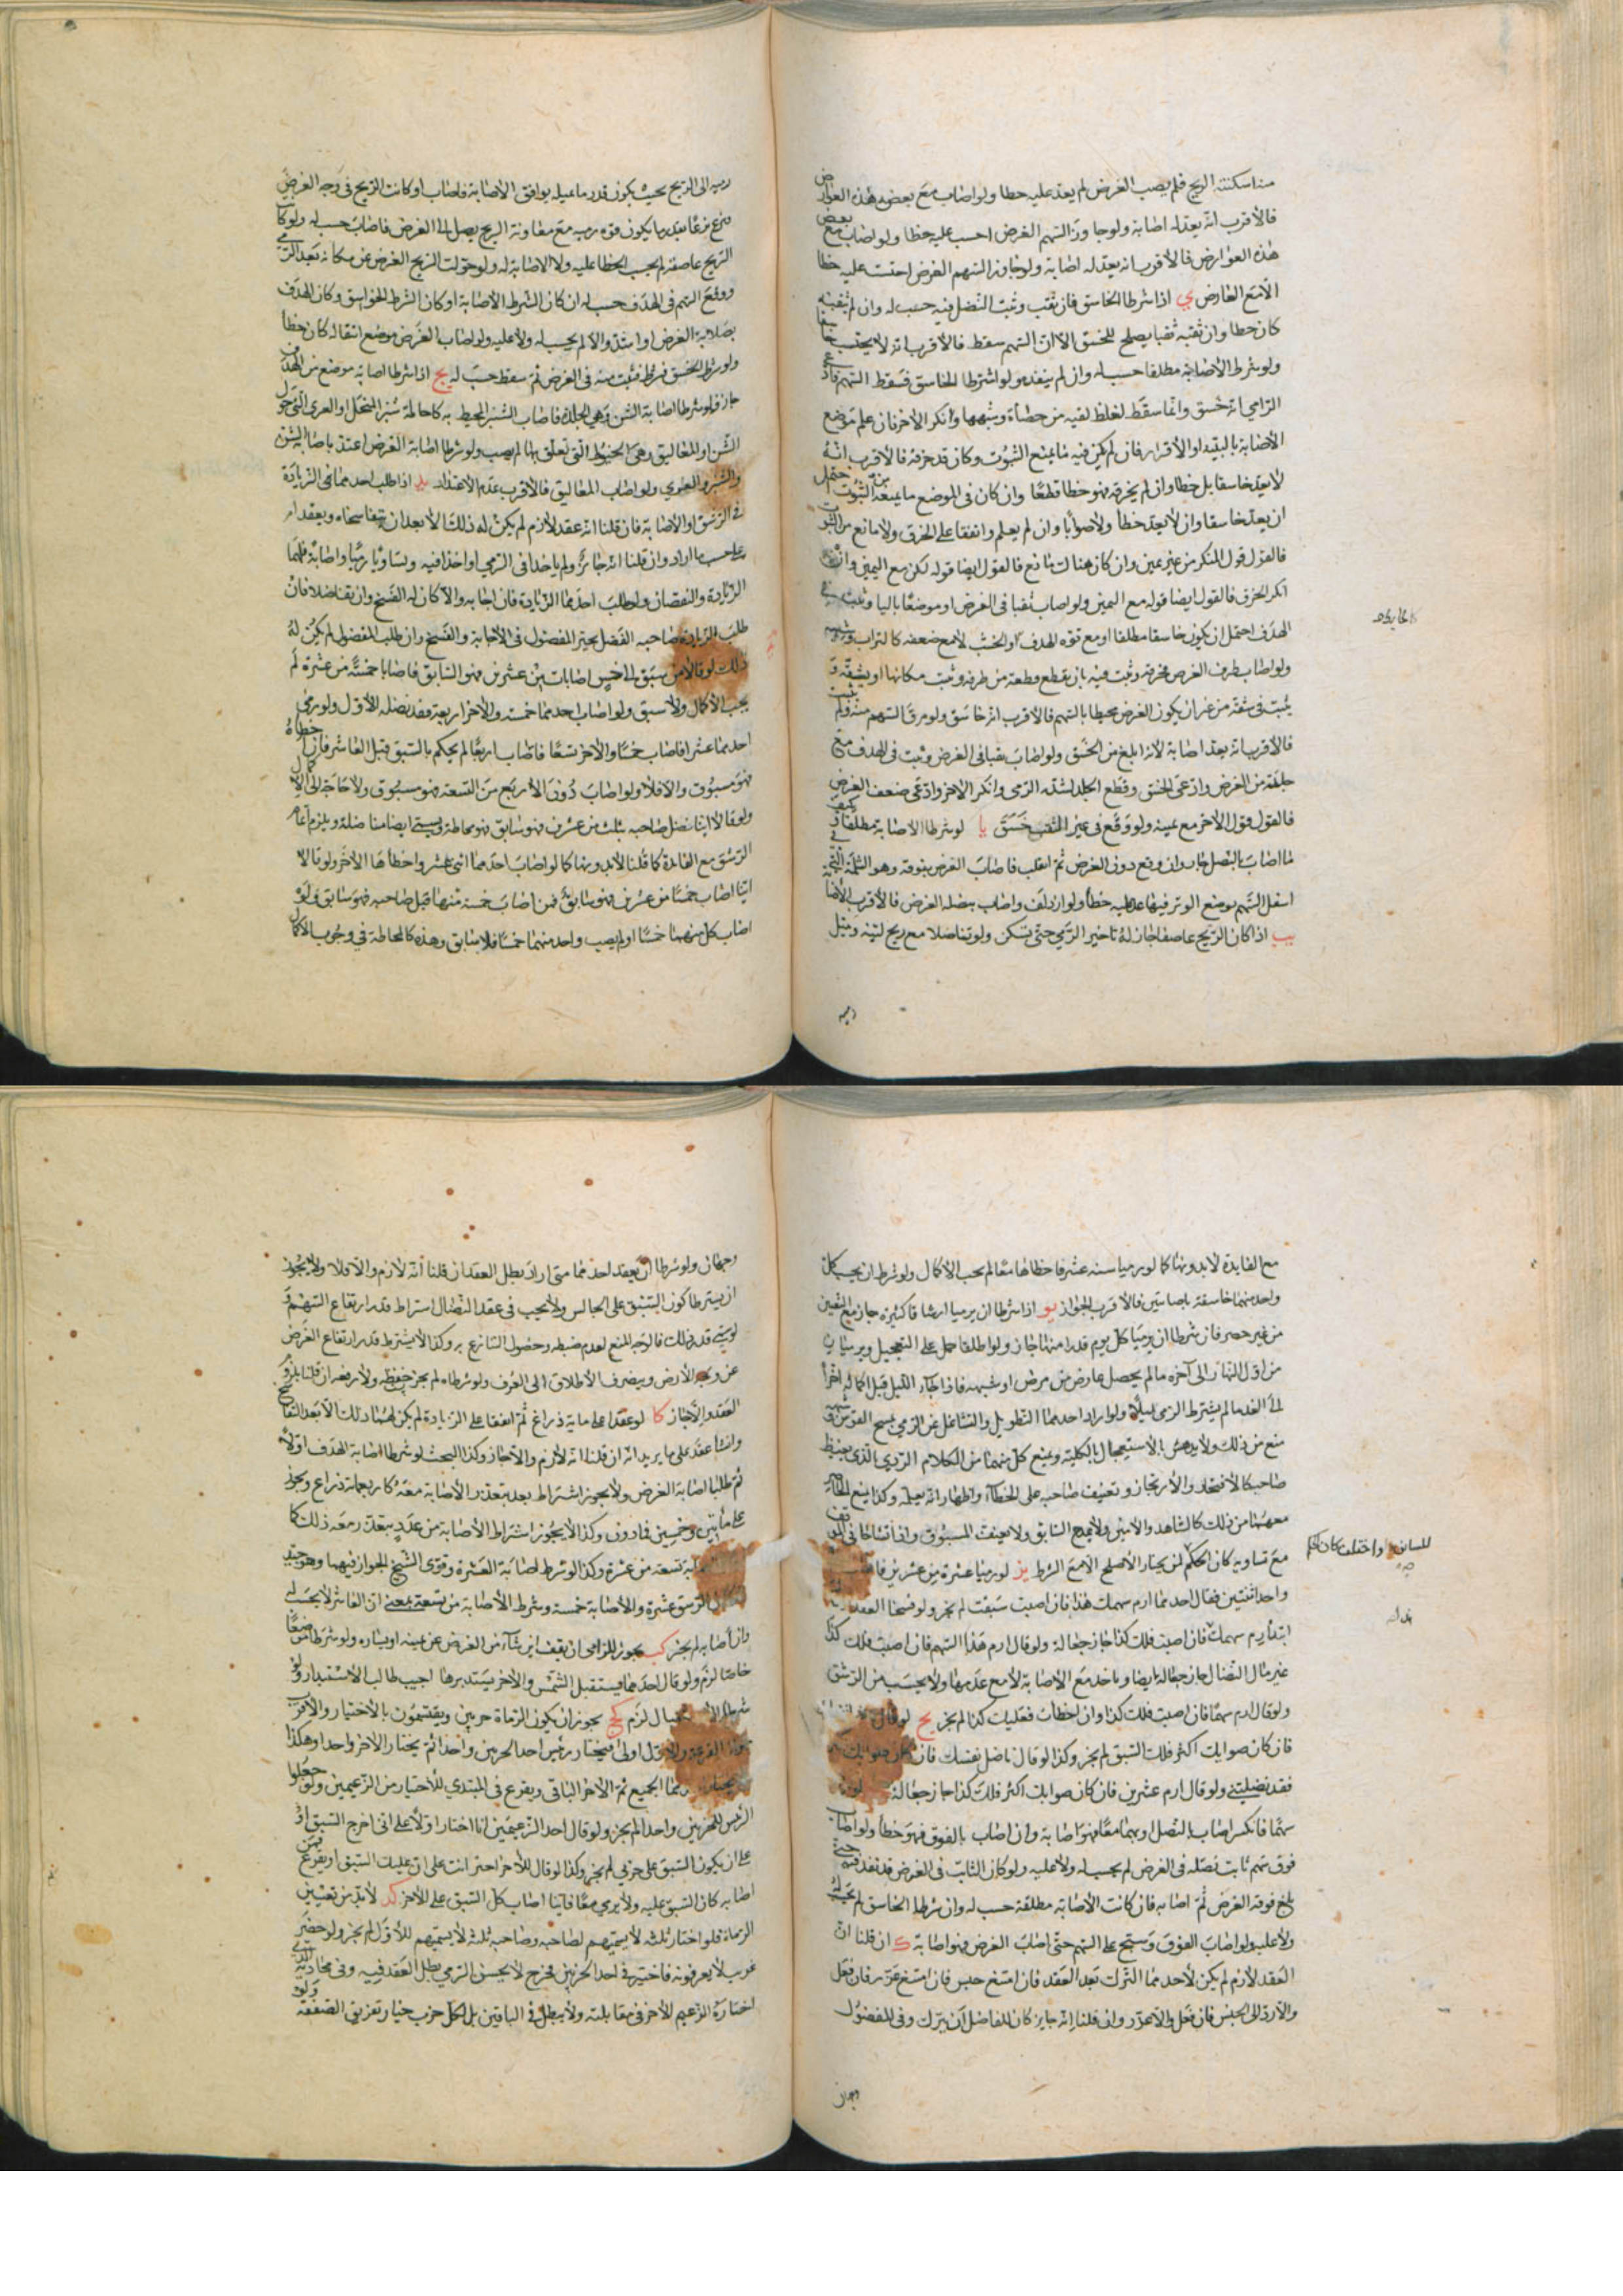 منه اسكنته الريح فلم يصب الغرض لم يعد عليه خطا ولو اصاب مع بعض هذه العوارض
فالاقرب انه يعد له اصابة ولو جاوز السهم الغرض احتسب عليه خطا ولو اصاب مع بعض
هذه العوارض فالاقرب انه يعد له اصابة ولو جاوز السهم الغرض احتسب عليه خطا
الا مع العارض ي اذا شرطا الخاسق فان ثقب وثبت النصل فيه حسب له وان لم يثقبه
كان خطا وان ثقبه ثقبا يصلح للخسق الا ان السهم سقط فالاقرب انه لا يحتسب خاسقا
ولو شرط الاصابة مطلقا حسب له وان لم ينفد ولو اشترطا الخاسق فسقط السهم فادعى
الرامي انه خسق وانما سقط لغلظ لقيه من حصاة وشبهها وانكر الاخر فان علم موضع
الاصابة بالبينة او الاقرار فان لم يكن فيه ما يمنع الثبوت وكان قد خرقه فالاقرب انه
لا يعد خاسقا بل خطا وان لم يخرقه فهو خطا قطعا وان كان في الموضع ما يمنعه من الثبوت احتمل
ان يعد خاسقا وان لا يعد خطأ ولا صوابا وان لم يعلم واتفقا على الخرق ولا مانع من الثبوت
فالقول قول المنكر من غير يمين وان كان هناك مانع فالقول ايضا قوله لكن مع اليمين وان
انكر الخرق فالقول ايضا قوله مع اليمين ولو اصاب ثقبا في الغرض او موضعا باليا وثبت في
الهدف احتمل ان يكون خاسقا مطلقا او مع قوة الهدف كالخشب لا مع ضعفه كالتراب وشبهه
ولو اصاب طرف الغرض فخرقه وثبت فيه بان يقطع قطعة من طرفه وثبت مكانها او يشقه و
يثبت في شقه من غير ان يكون الغرض محيطا بالسهم فالاقرب انه خاسق ولو مرق السهم منه ولم يثبت
فالاقرب انه يعد اصابة لانه ابلغ من الخسق ولو اصاب ثقبا في الغرض وثبت في الهدف مع
جلدة من الغرض وادعى الخسق وقطع الجلد لشدة الرمى وانكر الاخر وادعى ضعف الغرض
فالقول قول الاخر مع يمينه ولو وقع في غير الثقب خسق يا لو شرطا الاصابة مطلقا فكيف
ما اصاب بالنصل جاز وان وقع دون الغرض ثم انقلب فاصاب الغرض بفوقه وهو الثلمة التي في
اسفل السهم موضع الوتر فيها عد عليه خطأ ولو ازدلف واصاب بنصله الغرض فالاقرب الاصابة
يب اذا كان الريح عاصفا جاز له تاخير الرمي حتى تسكن ولو تناضلا مع ريح لينة وميل
رميه
رميه الى الريح بحيث يكون قدر ما يميله يوافق الاصابة فاصاب او كانت الريح في وجه الغرض
فنزع نزعا بقدر ما يكون قوة رميه مع معاونة الريح يصل الى الغرض فاصاب حسب له ولو كان
الريح عاصفة لم يحسب الخطا عليه ولا الاصابة له ولو حولت الريح الغرض عن مكانه بعد الرمي
ووقع السهم في الهدف حسب له ان كان الشرط الاصابة او كان الشرط الخواسق وكان الهدف
بصلابة الغرض او اشد والا لم يحسب له ولا عليه ولو اصاب الغرض موضع انتقاله كان خطأ
ولو شرط الخسق فثبت منه في الغرض ثم سقط حسب له يج اذا شرطا اصابة موضع من الهدف
جاز فلو شرطا اصابة الشن وهي الجلدة فاصاب الشبر المحيط به كاحاطة شبر المنخل او العرى التي حول
الشن او المغاليق وهي الخيوط التي تعلق بها لم يصب ولو شرطا اصابة الغرض اعتد باصابة الشن
والشبر والعرى ولو اصاب المغاليق فالاقرب عدم الاعتداد يد اذا طلب احدهما في الزيادة
في الرشق او الاصابة فان قلنا انه عقد لازم لم يكن له ذلك الا بعد ان يتفاسخاه ويعقداه
على حسب ما اراد وان قلنا انه جائز ولم ياخذا في الرمي او اخذا فيه وتساويا رميا واصابة فلهما
الزيادة والنقصان ولو طلب احدهما الزيادة فان اجابه والا كان له الفسخ وان تفاضلا فان
طلب الزيادة صاحب الفضل تخير المفضول في الاجابة والفسخ وان طلب المفضول لم يكن له
ذلك لو قالا من سبق الى خمس اصابات من عشرين فهو السابق فاصابا خمسة من عشرة لم
يجب الاكمال ولا سبق ولو اصاب احدهما خمسة والاخر اربعة فقد نضله الاول ولو رمى
احدهما عشرا فاصاب خمسا والاخر تسعا فاصاب اربعا لم يحكم بالسبق قبل العاشر فان اخطأه
فهو مسبوق والا فلا ولو اصاب دون الاربع من التسعة فهو مسبوق ولا حاجة الى الاكمال
ولو قالا اينا نضل صاحبه بثلث من عشرين فهو سابق فهو محاطة ويسمى ايضا مناضلة ويلزم اتمام
الرشق مع الفايدة كما قلنا لا بدونها كما لو اصاب احدهما اثنى عشر واخطأها الاخر ولو قالا
اينا اصاب خمسا من عشرين فهو سابق فمن اصاب خمسة منها قبل صاحبه فهو سابق ولو
اصاب كل منهما خمسا او لم يصب واحد منهما خمسا فلا سابق وهذه كالمحاطة في وجوب الاكمال
مع الفايدة لا بدونها كما لو رميا ستة عشر فاخطاها معا لم يجب الاكمال ولو شرط ان يحسب كل
واحد منهما خاسقه باصابتين فالاقرب الجواز يو اذا شرطا ان يرميا ارشاقا كثيرة جاز مع التعيين
من غير حصر فان شرطا ان يرميا كل يوم قدرا منها جاز ولو اطلقا حمل على التعجيل ويرميان
من اول النهار الى آخره ما لم يحصل عارض من مرض او شبهه فاذا جاء الليل قبل اكماله اخرا
الى الغد ما لم يشترط الرمى ليلا ولو اراد احدهما التطويل والتشاغل عن الرمي بمسح القوس
منع من ذلك ولا يدهش بالاستعجال بالكلية ويمنع كل منهما من الكلام الردي الذي يغيظ
صاحبه كالافتخار والارتجاز وتعنيف صاحبه على الخطأ واظهار انه يعلمه وكذا يمنع الحاضر
معهما من ذلك كالشاهد والامين ولا يمدح السابق ولا يعنف المسبوق واذا تشاحا في الموقف
مع تساويه كان الحكم لمن يختار الاصلح الا مع الشرط يز لو رميا عشرة من عشرين فاصاب
واحد اثنتين فقال احدهما ارم سهمك هذا فان اصبت سبقت لم يجز ولو فسخا العقد
ابتدأ ارم سهمك فان اصبت فلك كذا جاز جعالة ولو قال ارم هذا السهم فان اصبت فلك كذا
غير مال النضال جاز جعالة ايضا وياخذ مع الاصابة لا مع عدمها ولا يحسب من الرشق
ولو قال ارم سهما فان اصبت فلك كذا وان اخطات فعليك كذا لم يجز يح لو قال
فان كان صوابك اكثر فلك السبق لم يجز وكذا لو قال ناضل نفسك فان كان صوابك
فقد نضلتني ولو قال ارم عشرين فان كان صوابك اكثر فلك كذا جاز جعالة
سهما فانكسر اصاب بالنصل او بهما معا فهو اصابة وان اصاب بالفوق فهو خطأ ولو اصاب
فوق سهم ثابت نصله في الغرض لم يحسب له ولا عليه ولو كان الثابت في الغرض قد نفذ فيه حتى
بلغ فوقه الغرض ثم اصابه فان كانت الاصابة مطلقة حسب له وان شرطا الخاسق لم يحسب له
ولا عليه ولو اصاب الفوق وسبح على السهم حتى اصاب الغرض فهو اصابة ك ان قلنا ان
العقد لازم لم يكن لاحدهما الترك بعد العقد فان امتنع حبس فان امتنع عزر فان فعل
والا رد الى الحبس فان فعل والا عزر وان قلنا انه جايز كان للفاضل ان يترك وفي المفضول
وجهان
وجهان ولو شرطا ان يعقد احدهما متى اراد بطل العقد ان قلنا انه لازم والا فلا ولا يجوز
ان يشترطا كون السبق على الجالس ولا يجب في عقد النضال اشتراط قدر ارتفاع السهم و
لو بين قدر ذلك فالوجه المنع لعدم ضبطه وحصول التنازع به وكذا لا يشترط قدر ارتفاع الغرض
عن وجه الارض وينصرف الاطلاق الى العرف ولو شرطاه لم يجز خفضه ولا رفعه ان قلنا بلزوم
العقد والا جاز كا لو عقدا على ماية ذراع ثم اتفقا على الزيادة لم يكن لهما ذلك الا بعد التفاسخ
وانشا عقد على ما يريدانه ان قلنا انه لازم والا جاز وكذا البحث لو شرطا اصابة الهدف اولا
ثم طلبا اصابة الغرض ولا يجوز اشتراط بعد يتعذر الاصابة معه كاربعماية ذراع ويجوز
على مأتين وخمسين فما دون وكذا لا يجوز اشتراط الاصابة من عدد يتعذر معه ذلك كا
تسعة من عشرة وكذا لو شرط اصابة العشرة وقوى الشيخ الجواز فيهما وهو جيد
الرشق عشرة والاصابة خمسة وشرط الاصابة من تسعة بمعنى ان العاشر لا يحسب له
وان اصابه لم يجز كب يجوز للرامى ان يقف اين شاء من الغرض عن يمينه او يساره ولو شرطا موضعا
خاصا لزم ولو قال احدهما يستقبل الشمس والاخر يستدبرها اجيب طالب الاستدبار ولو
لزم كج يجوز ان يكون الرماة حزبين ويقتسمون بالاختيار والاقرب
فيختار رئيس احد الحزبين واحدا ثم يختار الاخر واحدا وهكذا
الجميع ثم الاخر الباقي ويقرع في المبتدي للاختيار من الزعيمين ولو جعلوا
الرئيس للحزبين واحدا لم يجز ولو قال احد الزعيمين انا اختار اولا على اني اخرج السبق او
على ان يكون السبق على حزبي لم يجز وكذا لو قال للاخر اختر انت على ان عليك السبق او يقرع فمن
اصابه كان السبق عليه ولا يرمي معا فاينا اصاب كان السبق على الاخر كد لا بد من تعيين
الرماة فلو اختار ثلثة لا يسميهم لصاحبه وصاحبه ثلثة لا يسميهم للاول لم يجز ولو حضر
غريب لا يعرفونه فاختير في احد الحزبين فخرج لا يحسن الرمي بطل العقد فيه وفي محاذيه الذي
اختاره الزعيم الاخر في مقابلته ولا يبطل في الباقين بل لكل حزب خيار تفريق الصفقة ولو